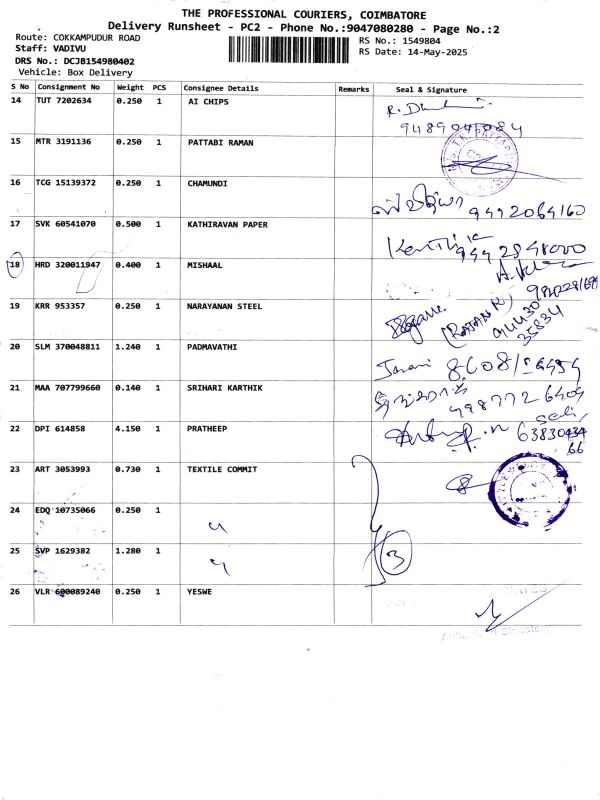 THE PROFESSIONAL COURIERS, COIMBATORE
Delivery Runsheet - PC2 - Phone No.:9047080280 - Page No.:2
Route: COKKAMPUDUR ROAD
RS No.: 1549804
Staff: VADIVU
RS Date: 14-May-2025
DRS No.: DCJB154980402
Vehicle: Box Delivery
S No Consignment No Weight PCS Consignee Details Remarks Seal & Signature
14 TUT 7202634 0.250 1 AI CHIPS
15 MTR 3191136 0.250 1 PATTABI RAMAN
16 TCG 15139372 0.250 1 CHAMUNDI 9442064160
17 SVK 60541070 0.500 1 KATHIRAVAN PAPER
18 HRD 320011947 0.400 1 MISHAAL
19 KRR 953357 0.250 1 NARAYANAN STEEL (RATAN K)
20 SLM 370048811 1.240 1 PADMAVATHI
21 MAA 707799660 0.140 1 SRIHARI KARTHIK
22 DPI 614858 4.150 1 PRATHEEP
23 ART 3053993 0.730 1 TEXTILE COMMIT
24 EDQ 10735066 0.250 1 "
25 SVP 1629382 1.280 1 " 3
26 VLR 600089240 0.250 1 YESWE